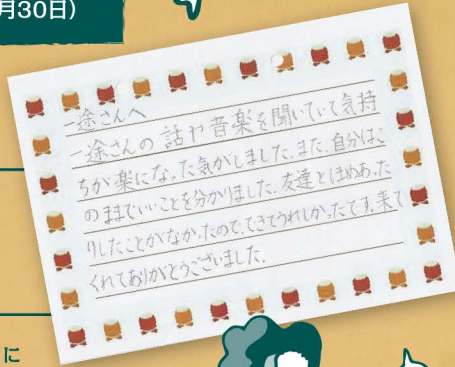 月30日）
一途さんへ
一途さんの話や音楽を聞いていて気持
ちが楽になった気がしました。また、自分はこ
のままでいいことを分かりました。友達とほめあった
りしたことがなかったので、できてうれしかったです。来て
くれてありがとうございました。
に